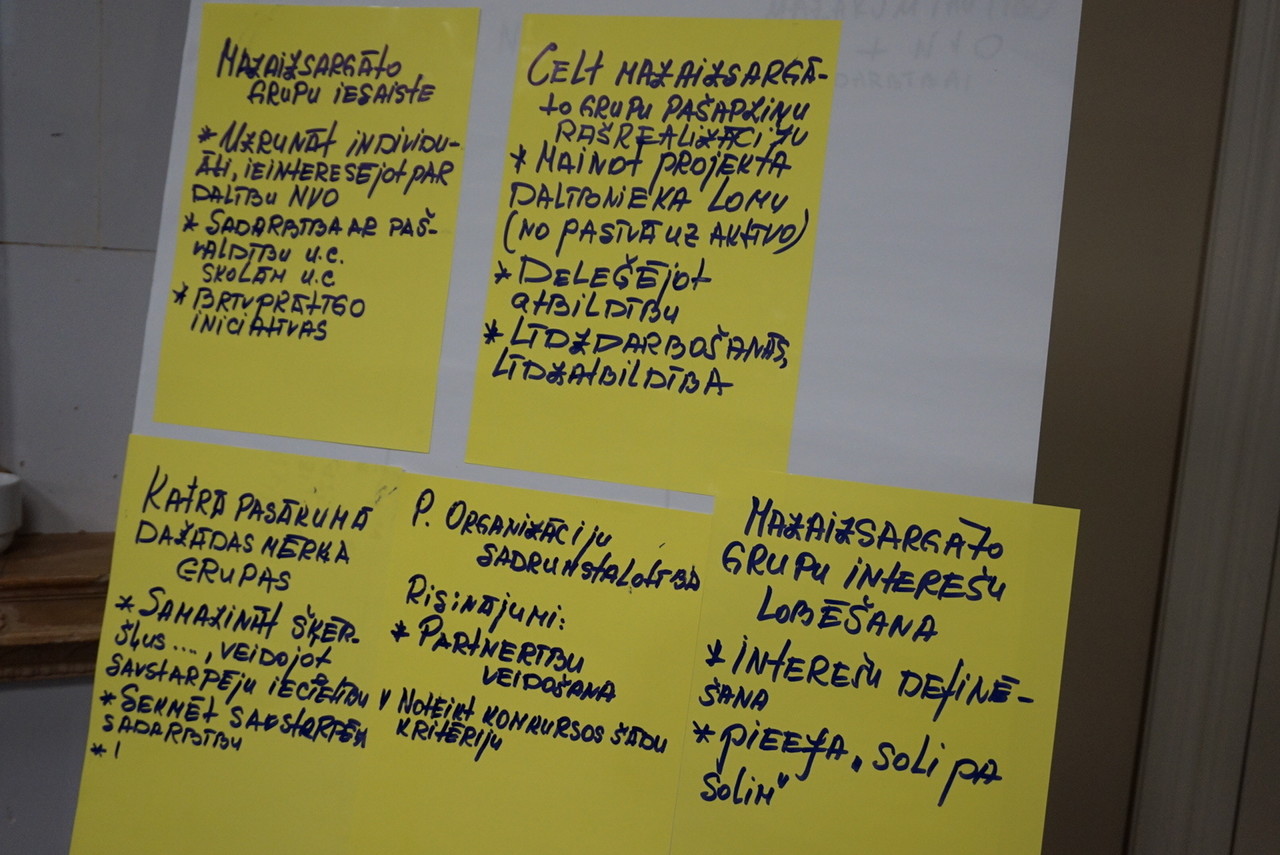 MAZAIZSARGĀTO
GRUPU IESAISTE
* UZRUNĀT INDIVIDU-
ĀLI, IEINTERESĒJOT PAR
DALĪBU NVO
* SADARBĪBA AR PAŠ-
VALDĪBU U.C.
SKOLĀM U.C
* BRĪVPRĀTĪGO
INICIATĪVAS
CELT MAZAIZSARGĀ-
TO GRUPU PAŠAPZIŅU
PAŠREALIZĀCIJU
* MAINOT PROJEKTA
DALĪBNIEKA LOMU
(NO PASĪVĀ UZ AKTĪVO)
* DELEĢĒJOT
ATBILDĪBU
* LĪDZDARBOŠANĀS,
LĪDZATBILDĪBA
KATRĀ PASĀKUMĀ
DAŽĀDAS MĒRĶA
GRUPAS
* SAMAZINĀT ŠĶĒR-
ŠĻUS ...., VEIDOJOT
SAVSTARPĒJU IECIETĪBU
* SEKMĒT SAVSTARPĒJU
SADARBĪBU
* !
P. ORGANIZĀCIJU
SADRUMSTALOTĪBA
RISINĀJUMI:
* PARTNERĪBU
VEIDOŠANA
V NOTEIKT KONKURSOS ŠĀDU
KRITĒRIJU
MAZAIZSARGĀTO
GRUPU INTEREŠU
LOBĒŠANA
* INTEREŠU DEFINĒ-
ŠANA
* PIEEJA „SOLI PA
SOLIM"